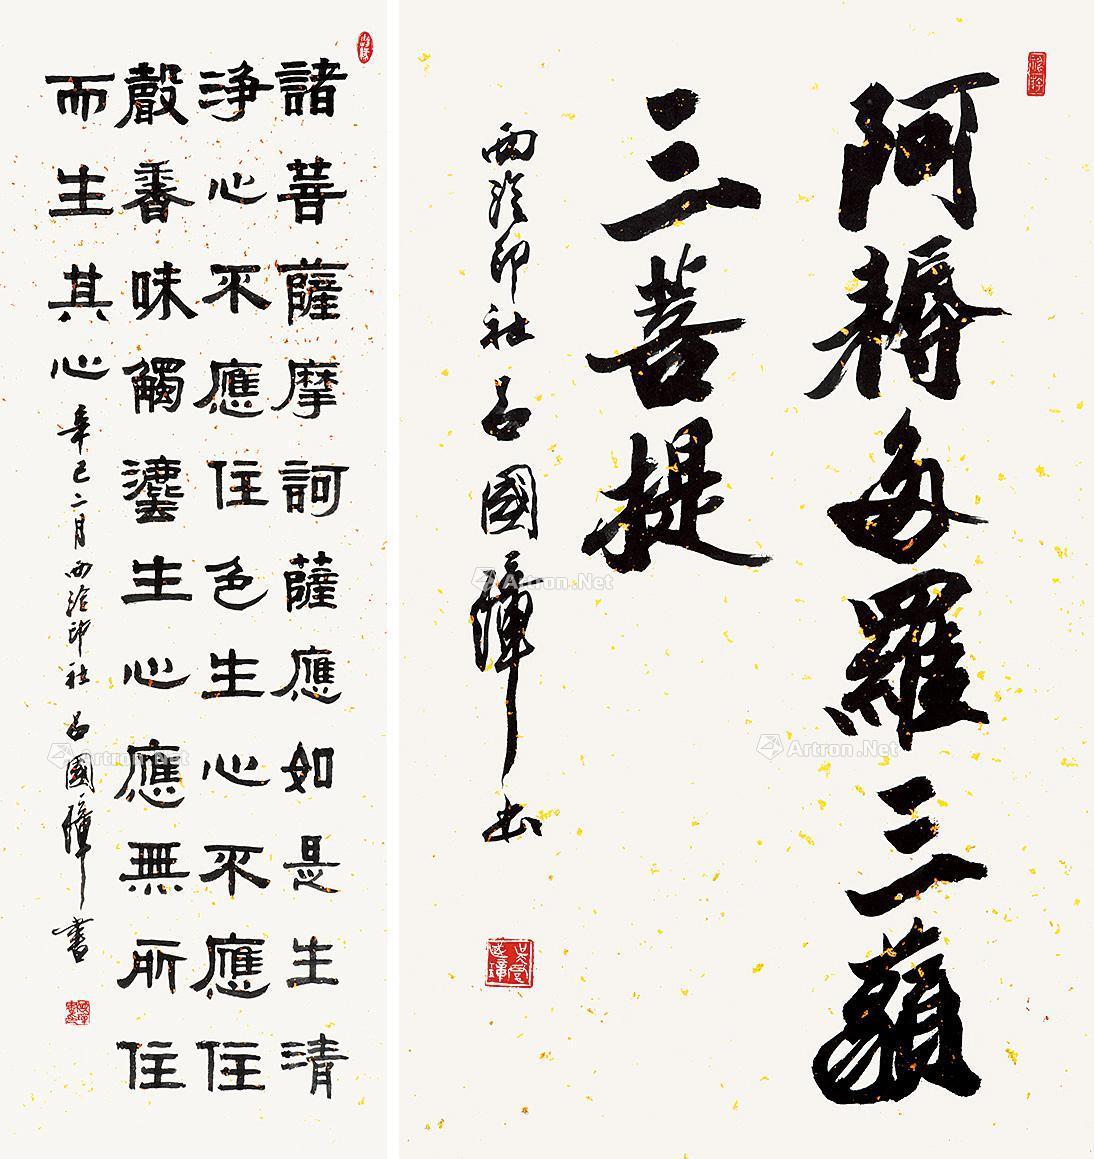 阿耨多羅三藐
三菩提
西泠印社呂國璋書
諸菩薩摩訶薩應如是生清
浄心不應住色生心不應住
聲香味觸灋生心應無所住
而生其心
辛巳二月西泠印社呂國璋書
Artron.Net
Artron.Net
Artron.Net